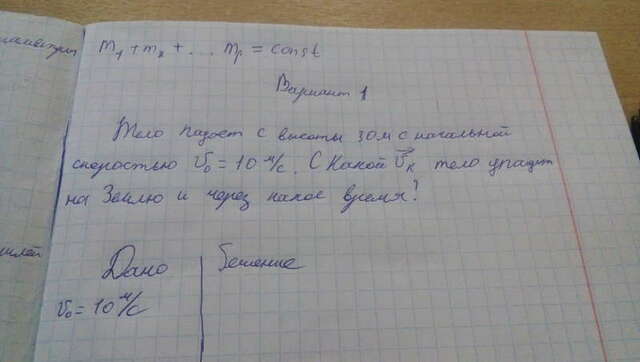 m₁ + m₂ + ... mₙ = const
Вариант 1
Тело падает с высоты 30м с начальной
скоростью V₀ = 10 м/с. С какой V⃗ₖ тело упадет
на Землю и через какое время?
Дано
Решение
V₀ = 10 м/с